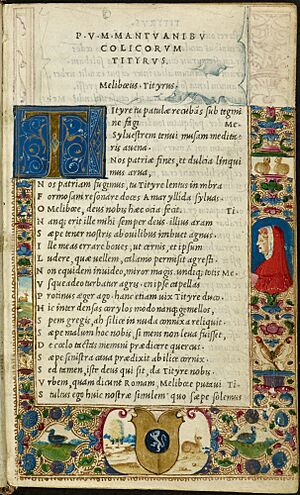 P. V. M. MANTVANI BV
COLICORVM
TITYRVS.
Meliboeus. Tityrus.
Tityre tu patulæ recubãs sub tegmi
ne fagi Me.
Syluestrem tenui musam medita
ris auena.
Nos patriæ fines, et dulcia linqui
mus arua,
Nos patriam fugimus, tu Tityre lentus in vmbra
Formosam resonare doces Amaryllida syluas.
O Meliboee, deus nobis hæc ocia fecit. Ti.
Nanq; erit ille mihi semper deus: illius aram
Sæpe tener nostris ab ouilibus imbuet agnus.
Ille meas errare boues, ut cernis, et ipsum
Ludere, quæ uellem, calamo permisit agresti.
Non equidem inuideo, miror magis. undiq; totis Me
Vsque adeo turbatur agris. en ipse capellas
Protinus æger ago. hanc etiam uix Tityre duco.
Hic inter densas corylos modo nanq; gemellos,
Spem gregis, ah silice in nuda connixa reliquit.
Sæpe malum hoc nobis, si mens non leua fuisset,
De cœlo tactas memini prædicere quercus.
Sæpe sinistra caua prædixit ab ilice cornix.
Sed tamen, iste deus qui sit, da Tityre nobis.
Vrbem, quam dicunt Romam, Melibœe putaui Ti
Stultus ego huic nostræ similem, quo sæpe solemus